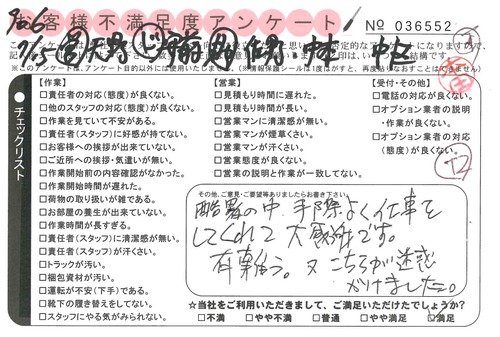 お客様不満足度アンケート
No 036552
【作業】
□責任者の対応(態度)が良くない。
□他のスタッフの対応(態度)が良くない。
□作業を見ていて不安がある。
□責任者(スタッフ)に好感が持てない。
□お客様への挨拶が出来ていない。
□ご近所への挨拶・気遣いが無い。
□作業開始前の内容確認がなかった。
□作業開始時間が遅れた。
□荷物の取り扱いが雑である。
□お部屋の養生が出来ていない。
□作業時間が長すぎる。
□責任者(スタッフ)に清潔感が無い。
□責任者(スタッフ)が汗くさい。
□トラックが汚い。
□梱包資材が汚い。
□運転が不安(下手)である。
□靴下の履き替えをしてない。
□スタッフにやる気がみられない。
チェックリスト
【営業】
□見積もり時間に遅れた。
□見積もり時間が長い。
□営業マンに清潔感が無い。
□営業マンが煙草くさい。
□営業マンが汗くさい。
□営業態度が良くない。
□営業の説明と作業が一致してない。
【受付・その他】
□電話の応対が良くない。
□オプション業者の説明
・作業が良くない。
□オプション業者の対応
(態度)が良くない。
その他、ご意見・ご要望等ありましたらお書き下さい。
酷暑の中、手際よく仕事を
してくれて大感謝です。
有難う。又こちらが迷惑
かけました。
☆当社をご利用いただきまして、ご満足いただけたでしょうか?
□不満 □やや不満 □普通 □やや満足 □満足